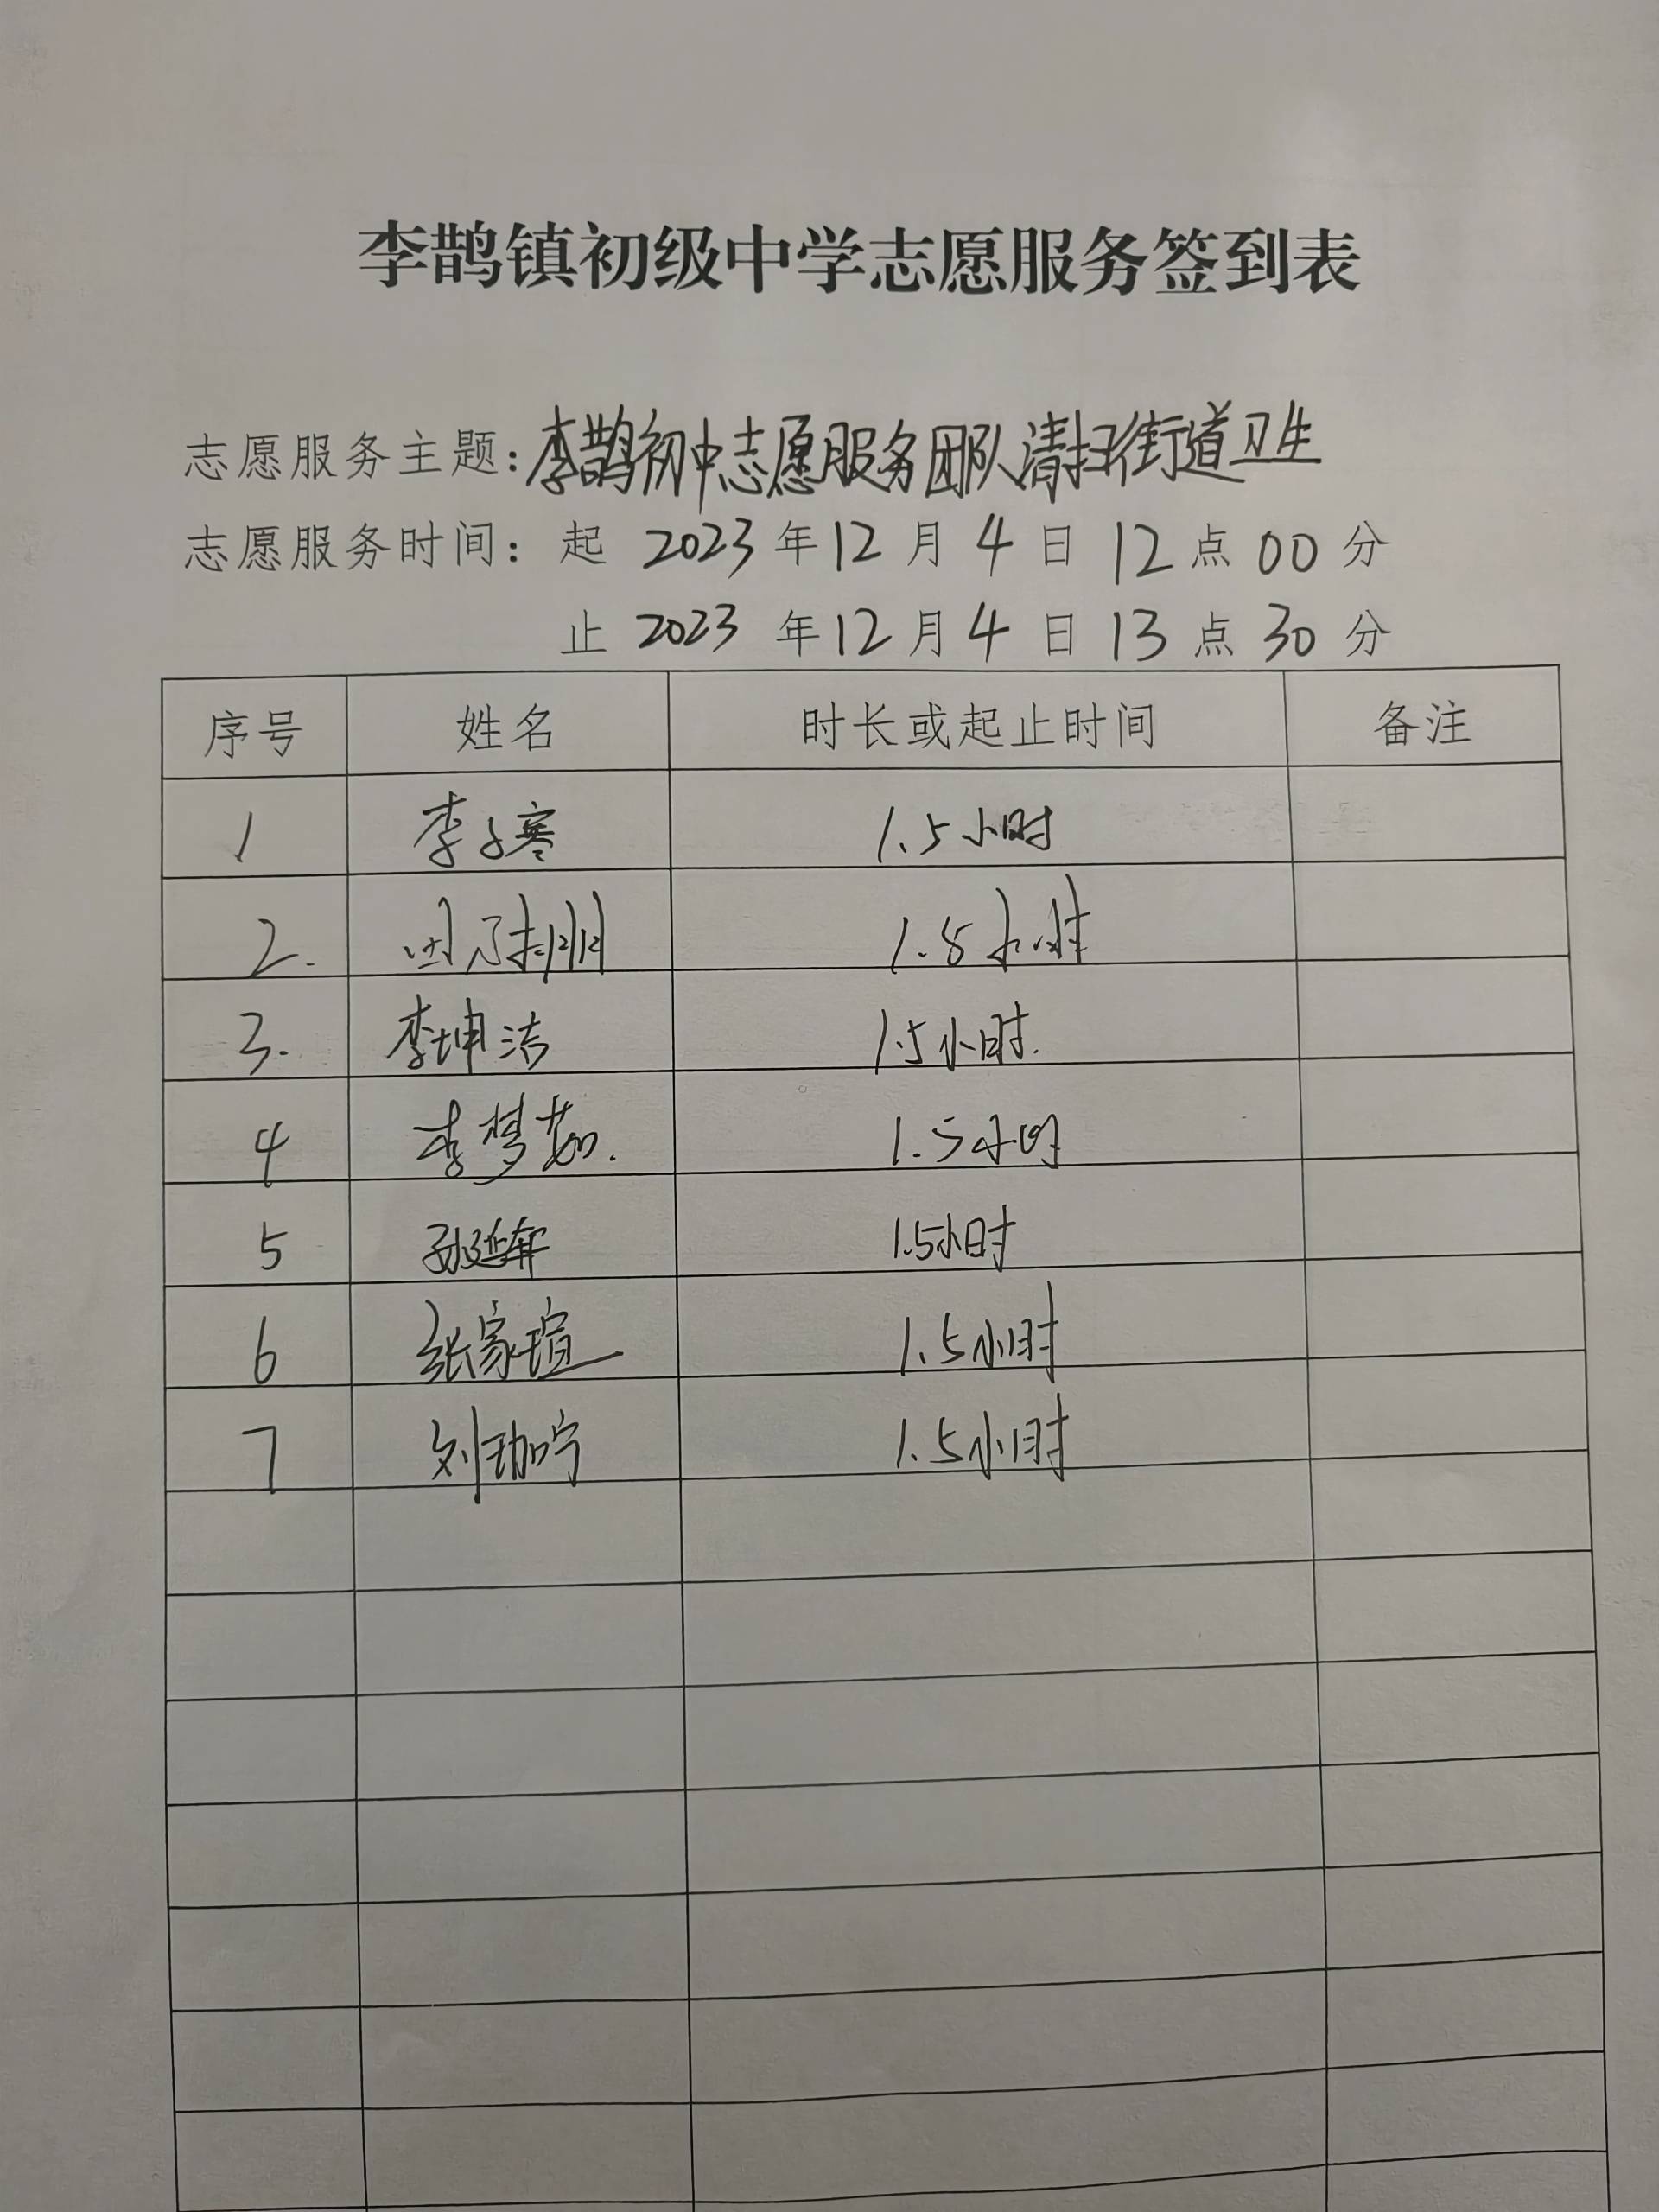 李鹊镇初级中学志愿服务签到表
志愿服务主题：李鹊初中志愿服务团队清扫街道卫生
志愿服务时间：起 2023 年 12 月 4 日 12 点 00 分
止 2023 年 12 月 4 日 13 点 30 分
序号 姓名 时长或起止时间 备注
1 李子寒 1.5小时
2. 1.5小时
3. 李坤洁 1.5小时.
4 李梦茹. 1.5小时
5 孙延 1.5小时
6 张家瑄 1.5小时
7 刘珈宁 1.5小时